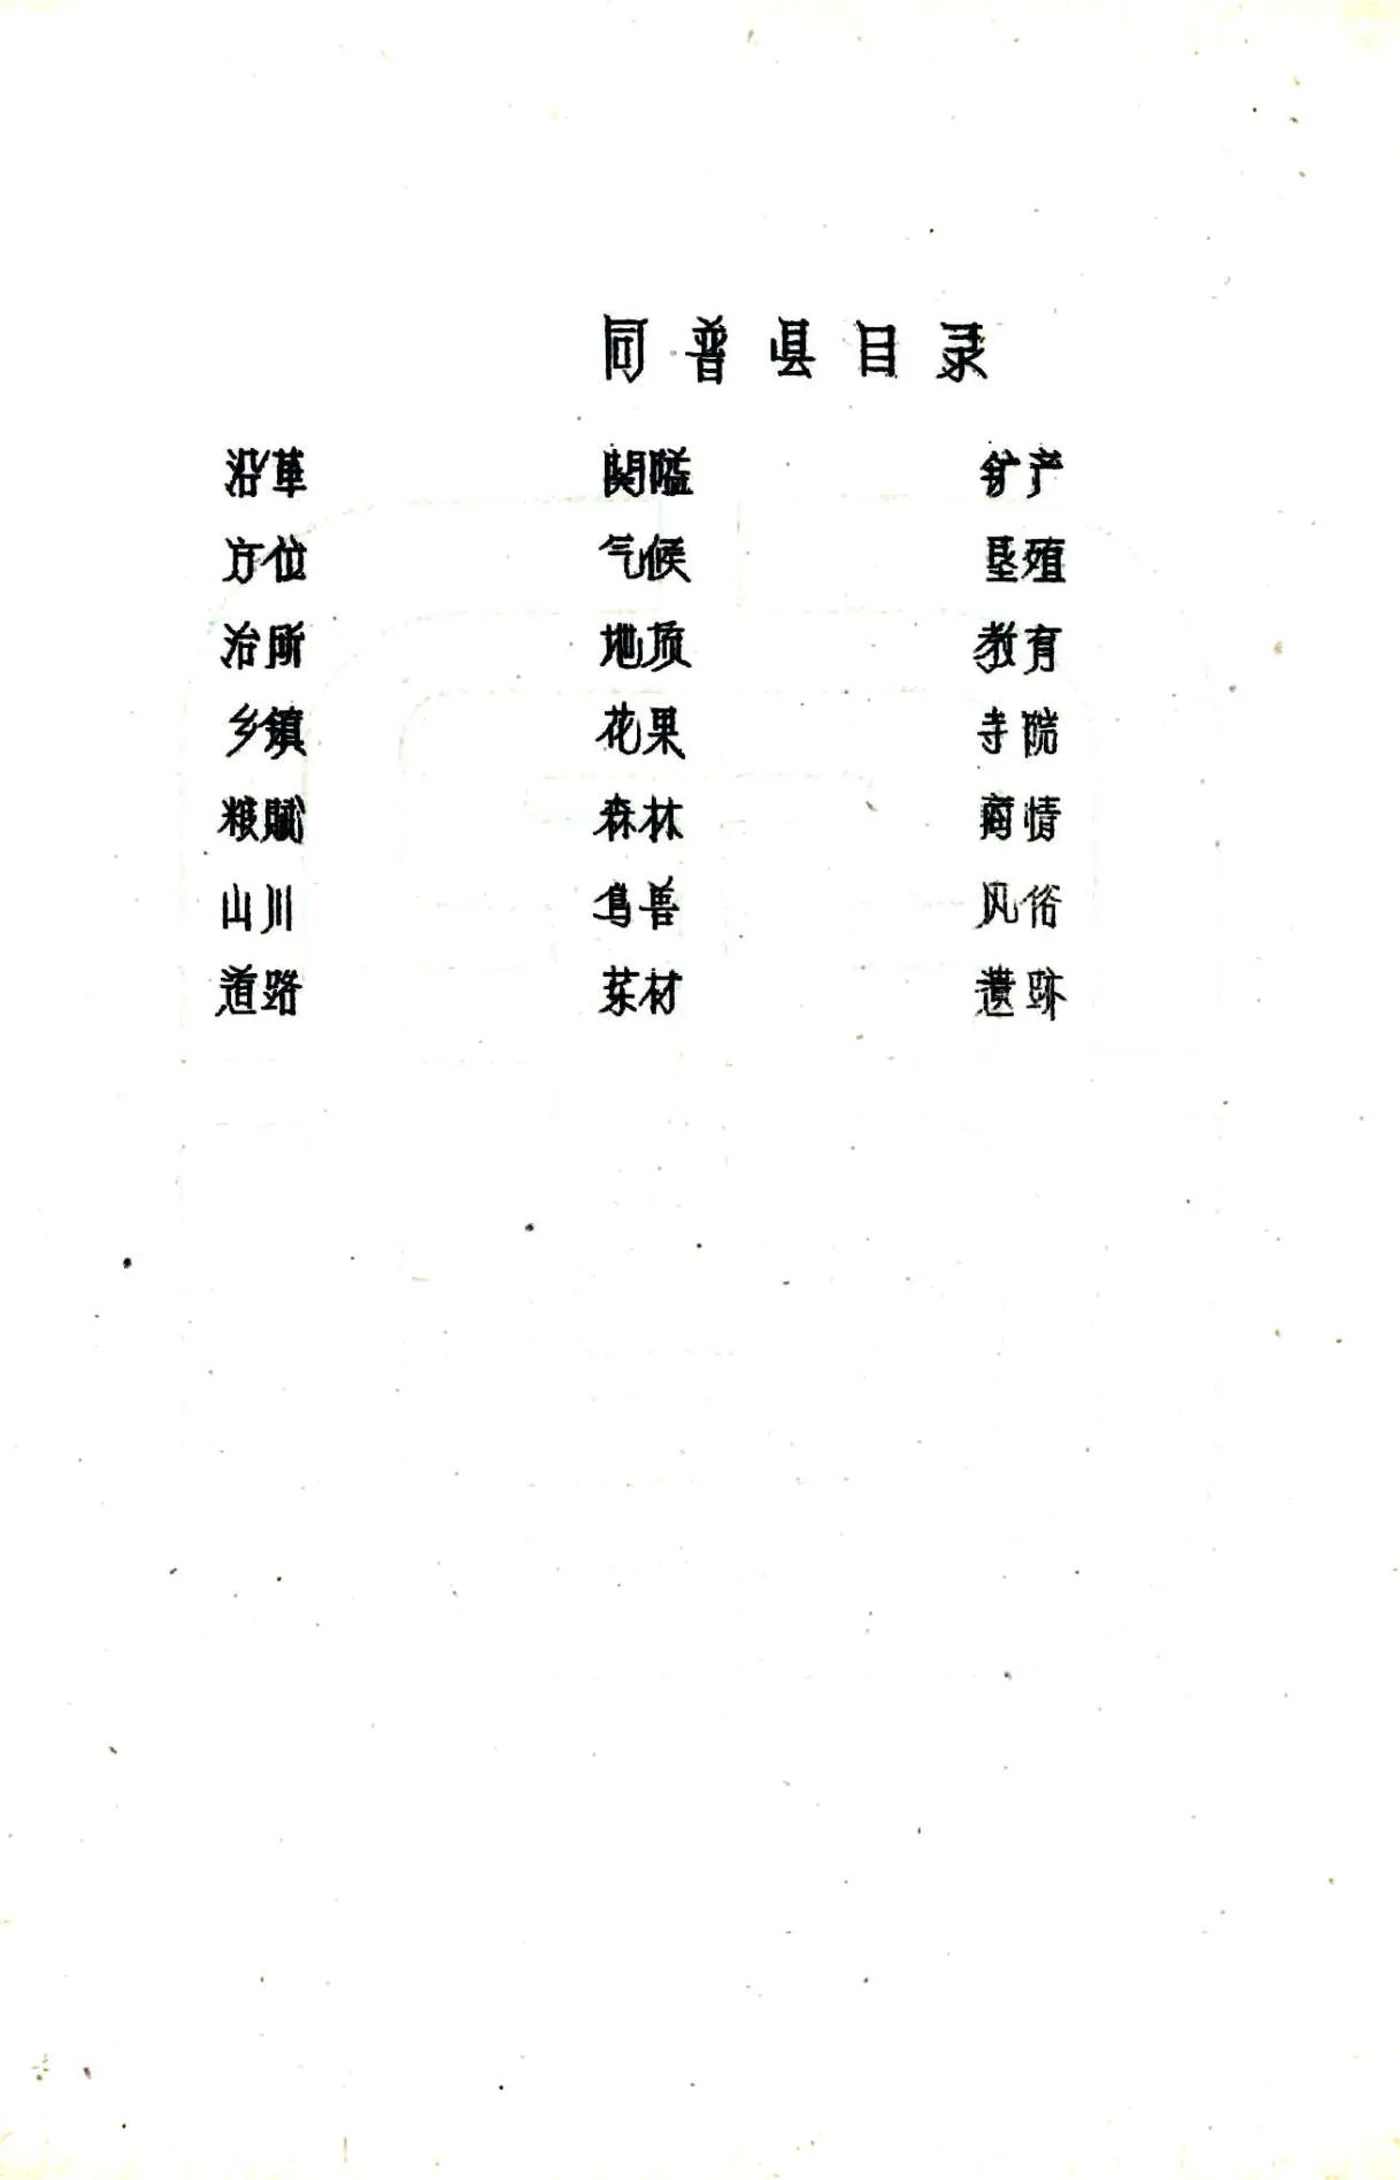 同普县目录
沿革 関隘 矿产
方位 气候 垦殖
治所 地顶 教育
乡镇 花果 寺院
粮赋 森林 商情
山川 鸟兽 风俗
道路 药材 遗跡